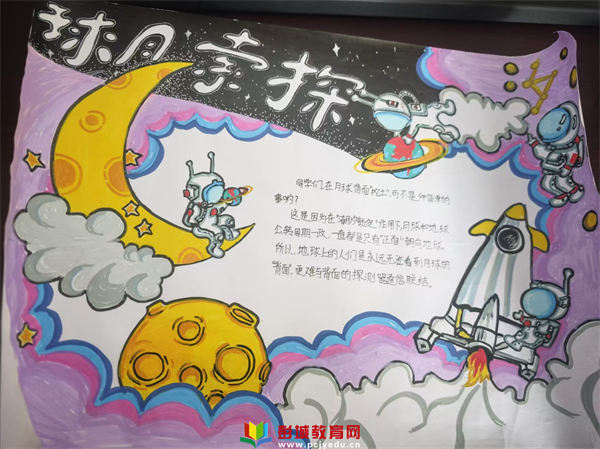 球月索探
同学们,在月球背面"挖土",可不是一件简单的
事哟?
这是因为在"潮汐锁定"作用下,月球和地球
公转周期一致,一直都是只有"正面"朝向地球。
所以,地球上的人们是永远无法看到月球的
"背面",更难与背面的探测器通信联结。
彭城教育网
www.pcjyedu.cn